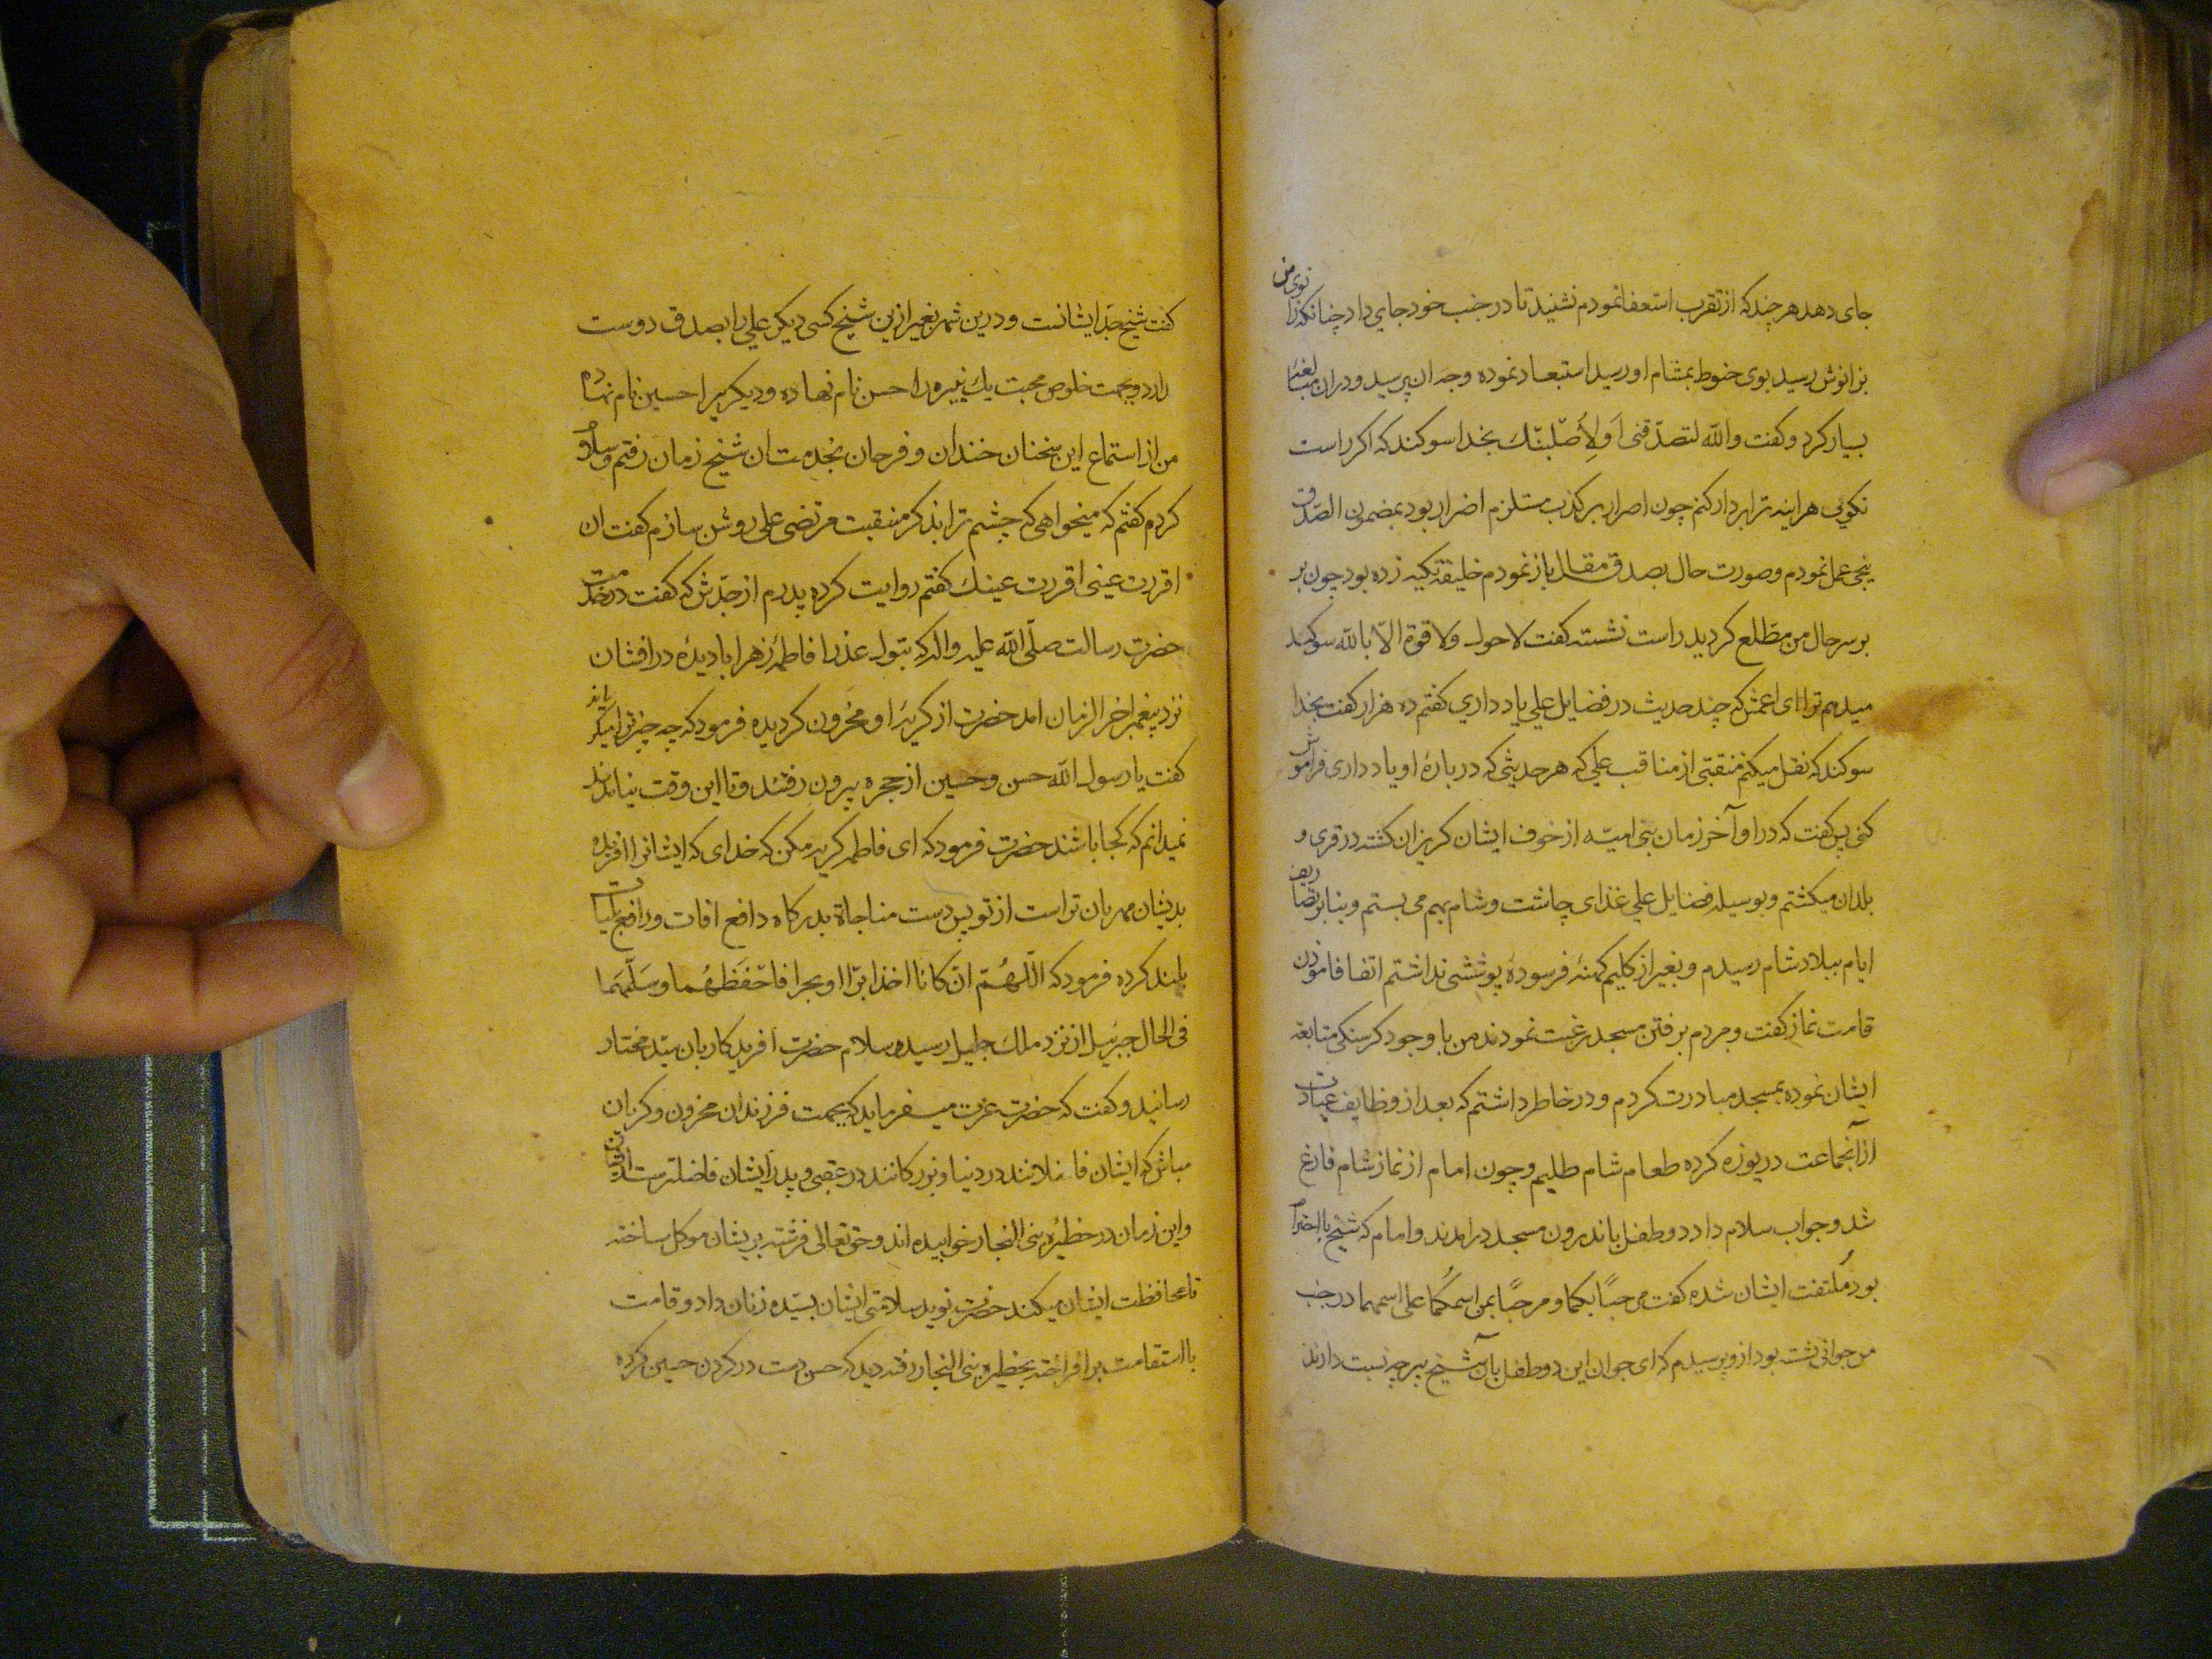 جای دهد هر چند که از تقرب استعفا نمودم نشنید تا در جنب خود جای داد چنانکه زانوی من
بزانوش رسید بوی حنوط بمشام او رسید استبعاد نموده وجه آن پرسید و دران مبالغهٔ
بسیار کرد و گفت والله لتصدّقنی اَو لأَصّلبنّکَ بخدا سوکند که اکر راست
نکویی هراینه ترا بردار کنم چون اصرار بر کذب مستلزم اضرار بود بمضمون الصّدق
ینجی عمل نمودم و صورت حال بصدق مقال باز نمودم خلیفه تکیه زده بود چون بر
بر سر حال من مطّلع کردید راست نشسته کفت لا حول ولا قوة الّا بالله سوکند
میدهم ترا ای اعمش که چند حدیث در فضایل علی یاد داری کفتم ده هزار کفت بخدا
سوکند که نقل میکنم منقبتی از مناقب علی که هر حدیثی که در بارهٔ او یاد داری فراموش
کنی پس کفت که در اوآخر زمان بنی امیّه از خوف ایشان کریزان کشته در قری و
بلدان میکشتم و بوسیله فضایل علی غذای چاشت و شام بهم می بستم و بنابر تصاریف
ایام ببلاد شام رسیدم و بغیر از کلیم کهنهٔ فرسودهٔ پوششی نداشتم اتفاقا مؤذن
قامت نماز کفت و مردم برفتن مسجد رغبت نمودند من با وجود کرسنکی متابعه
ایشان نموده بمسجد مبادرت کردم و در خاطر داشتم که بعد از وظایف عبادت
ازآنجماعت دریوزه کرده طعام شام طلبم و چون امام از نماز شام فارغ
شد و جواب سلام داد دو طفل باندرون مسجد درامدند و امام که شیخ با احترام
بود مُلتفت ایشان شده کفت مرحبًا بکما و مرحبًا بمن اسمکُما علی اسمهما در جنب
من جوانی نشسته بود ازو پرسیدم که ای جوان این دو طفل باین شیخ پیر چه نسبت دارند
کفت شیخ جدّ ایشانست و درین شهر بغیر ازین شیخ کسی دیکر علی را بصدق دوست
ندارد و بجهت خلوص محبت یک نبیره را حسن نام نهاده و دیکریرا حسین نام نهاده
من از استماع این سخنان خندان و فرحان بخدمت ان شیخ زمان رفتم و سلام
کردم کفتم که میخواهی که چشم ترا بذکر منقبت مرتضی علی روشن سازم کفت ان
اقررت عینی اقررت عینک کفتم روایت کرده پدرم از جدّش که کفت در خدمت
حضرت رسالت صلّی الله علیه و اله که بتول عذرا فاطمهٔ زهرا با دیدهٔ درافشان
نزد پیغمبر اخر الزمان امد حضرت از کریهٔ او محزون کردیده فرمود که چه چیز ترا میکریاند
کفت یا رسول الله حسن و حسین از حجره بیرون رفتند و تا این وقت نیامدند
نمیدانم که کجا باشند حضرت فرمود که ای فاطمه کریه مکن که خدای که ایشانرا افریده
بدیشان مهربان تر است از تو پس دست مناجاة بدرکاه دافع افات و رافع بلیات
بلند کرده فرمود که اللّهُمّ ان کانا اخذا برّا او بحرا فاحفَظهُما وسَلّمهَما
فی الحال جبرئیل از نزد ملک جلیل رسیده سلام حضرت آفریدکار بان سیّد مختار
رسانید و کفت که حضرت عزت میفرماید که بجهت فرزندان محزون و کریان
مباش که ایشان فاضلانند در دنیا و بزرکانند در عقبی و پدر ایشان فاضلترست از ایشان
و این زمان در حظیرهٔ بنی النجار خوابیده اند و حق تعالی فرشته بریشان موکل ساخته
تا محافظت ایشان میکند حضرت نوید سلامتی ایشان بسیّده زنان داد و قامت
با استقامت برافراخته بحظیره بنی النجار رفته دید که حسن دست در کردن حسین کرده